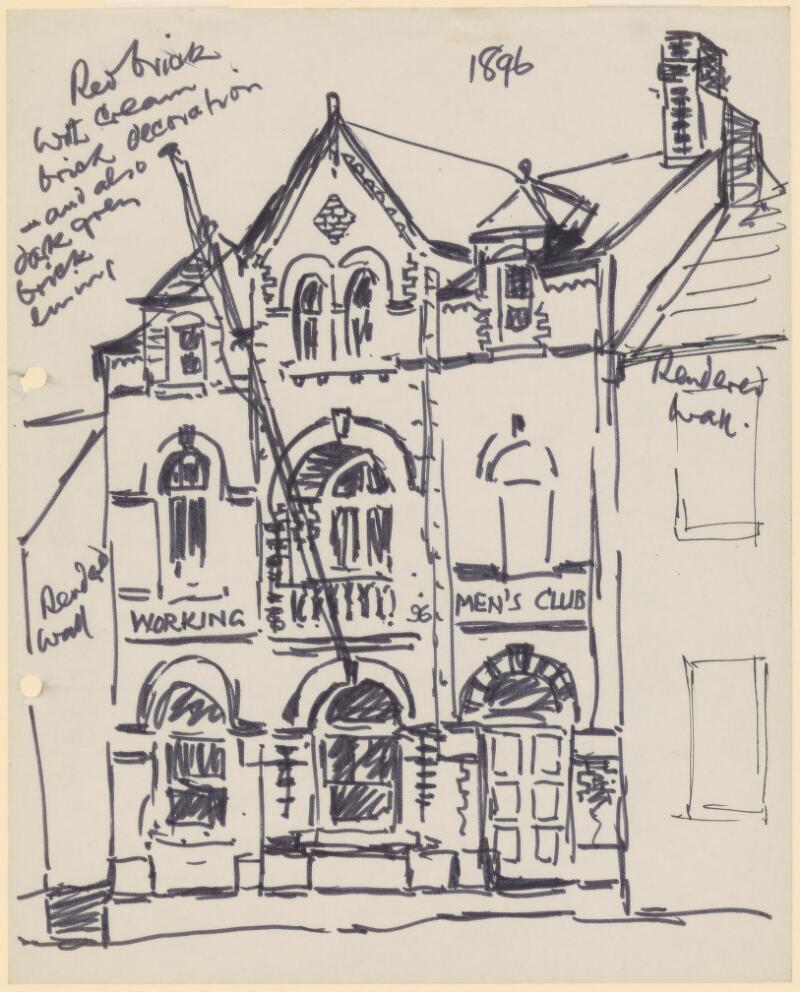 Red brick
with cream
brick decoration
- and also
dark green
brick
1896
Rendered
wall.
Rendered
wall
WORKING
96
MEN'S CLUB